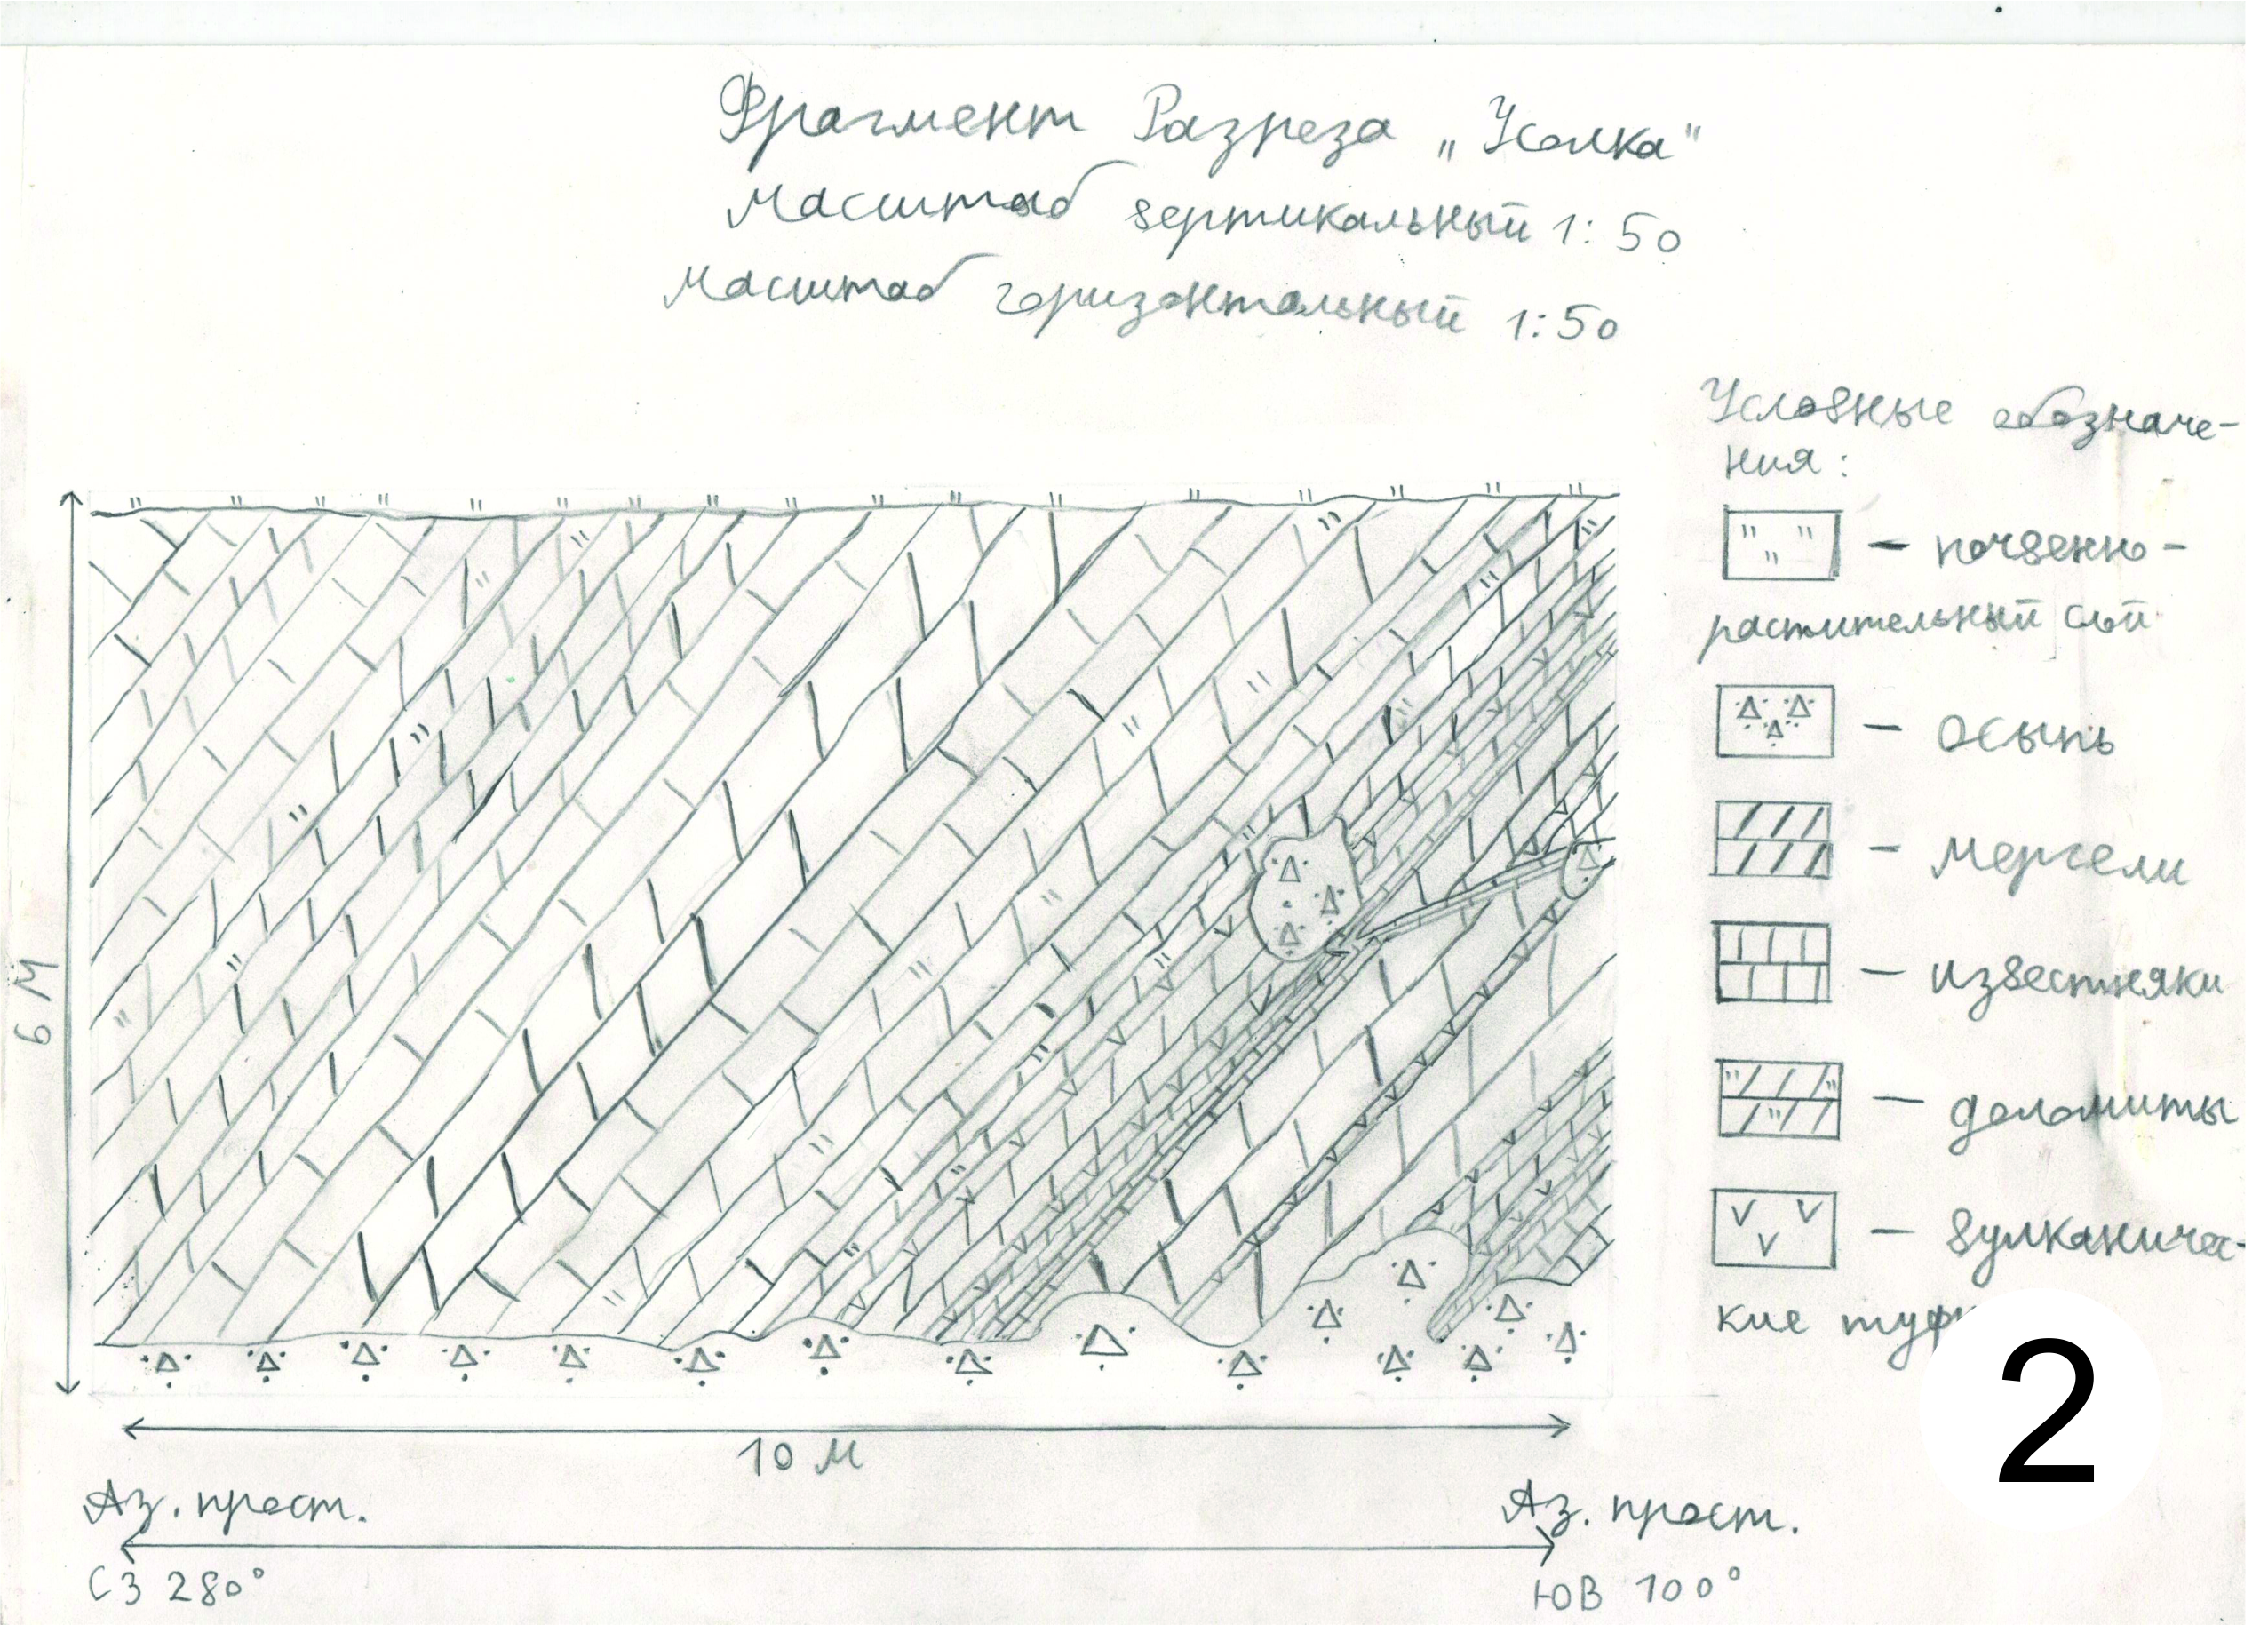 Фрагмент Разреза „Усолка"
Масштаб вертикальный 1:50
Масштаб горизонтальный 1:50
Условные обозначе-
ния:
— почвенно-
растительный слой
— осыпь
— мергели
— известняки
— доломиты
— вулканичес-
кие туфы
6 М
10 М
Аз. прост.
Аз. прост.
СЗ 280°
ЮВ 100°
2